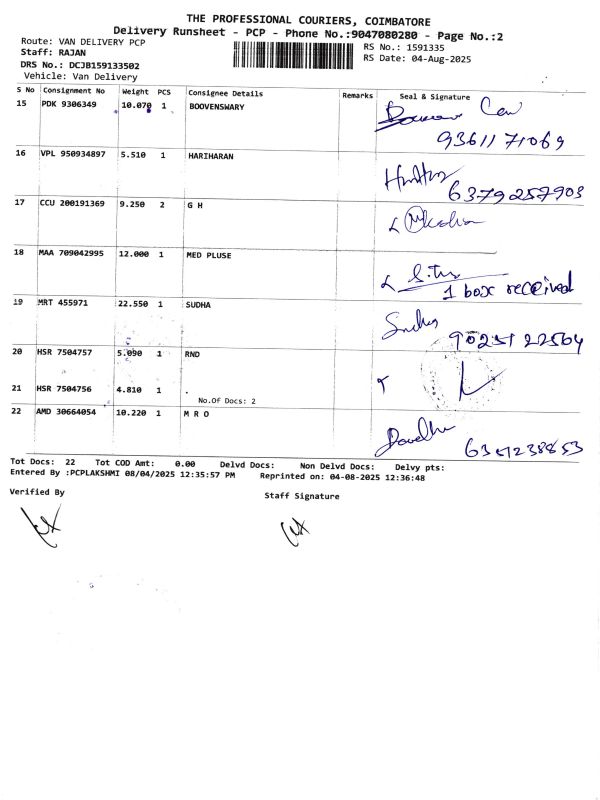 THE PROFESSIONAL COURIERS, COIMBATORE
Delivery Runsheet - PCP - Phone No.:9047080280 - Page No.:2
Route: VAN DELIVERY PCP
Staff: RAJAN
DRS No.: DCJB159133502
Vehicle: Van Delivery
RS No.: 1591335
RS Date: 04-Aug-2025
S No Consignment No Weight PCS Consignee Details Remarks Seal & Signature
15 PDK 9306349 10.070 1 BOOVENSWARY
9361171069
16 VPL 950934897 5.510 1 HARIHARAN
6379257903
17 CCU 200191369 9.250 2 G H
18 MAA 709042995 12.000 1 MED PLUSE
1 box received
19 MRT 455971 22.550 1 SUDHA
Sudha
9025122564
20 HSR 7504757 5.090 1 RND
21 HSR 7504756 4.810 1 .
No.Of Docs: 2
22 AMD 30664054 10.220 1 M R O
6351238853
Tot Docs: 22 Tot COD Amt: 0.00 Delvd Docs: Non Delvd Docs: Delvy pts:
Entered By :PCPLAKSHMI 08/04/2025 12:35:57 PM Reprinted on: 04-08-2025 12:36:48
Verified By
Staff Signature